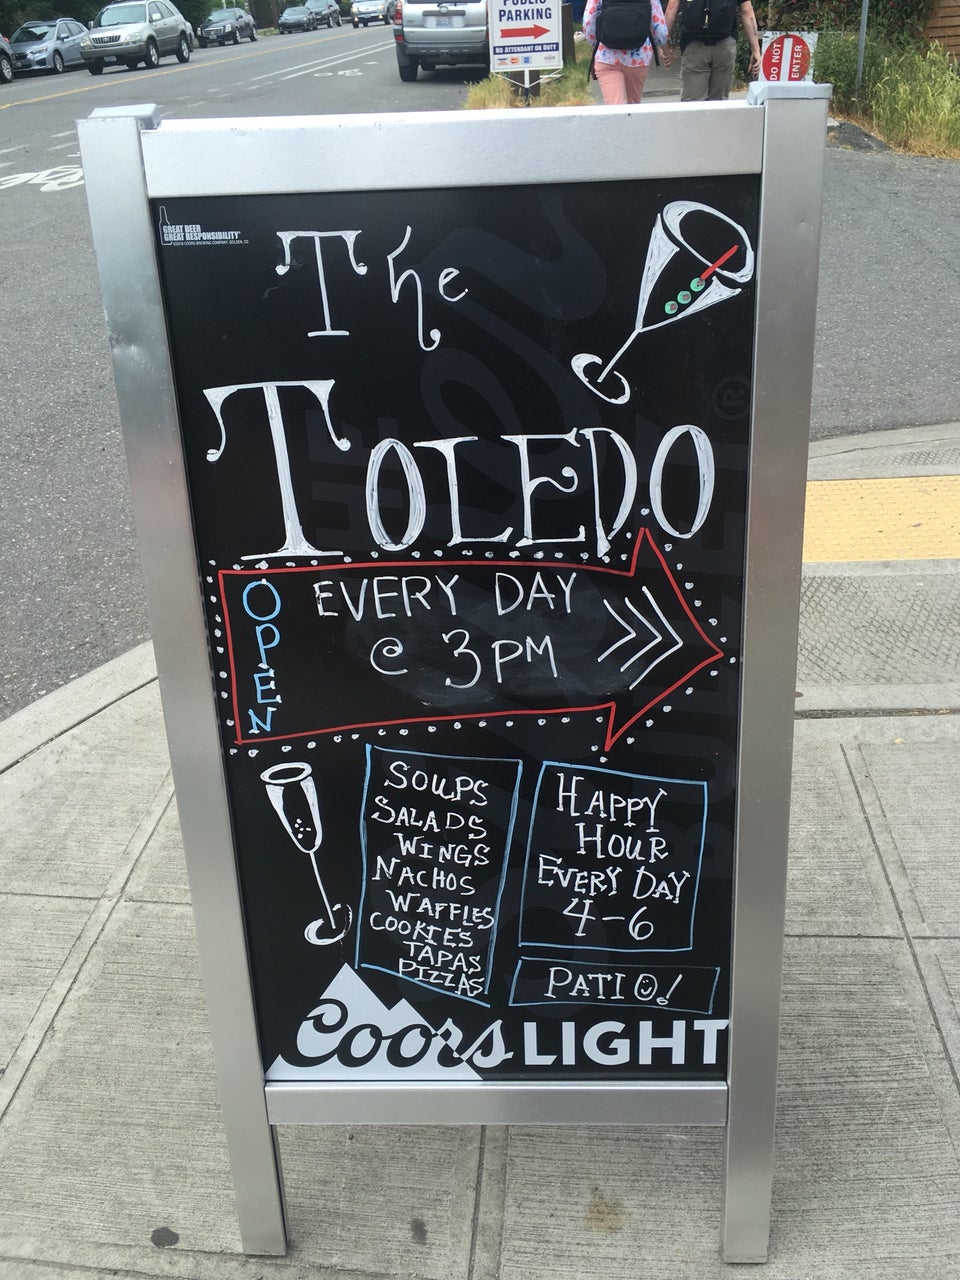 PUBLIC
PARKING
NO ATTENDANT ON DUTY
DO NOT
ENTER
GREAT BEER
GREAT RESPONSIBILITY®
The
TOLEDO
OPEN
EVERY DAY
@ 3PM
SOUPS
SALADS
WINGS
NACHOS
WAFFLES
COOKIES
TAPAS
PIZZAS
HAPPY
HOUR
EVERY DAY
4-6
PATIO!
Coors LIGHT